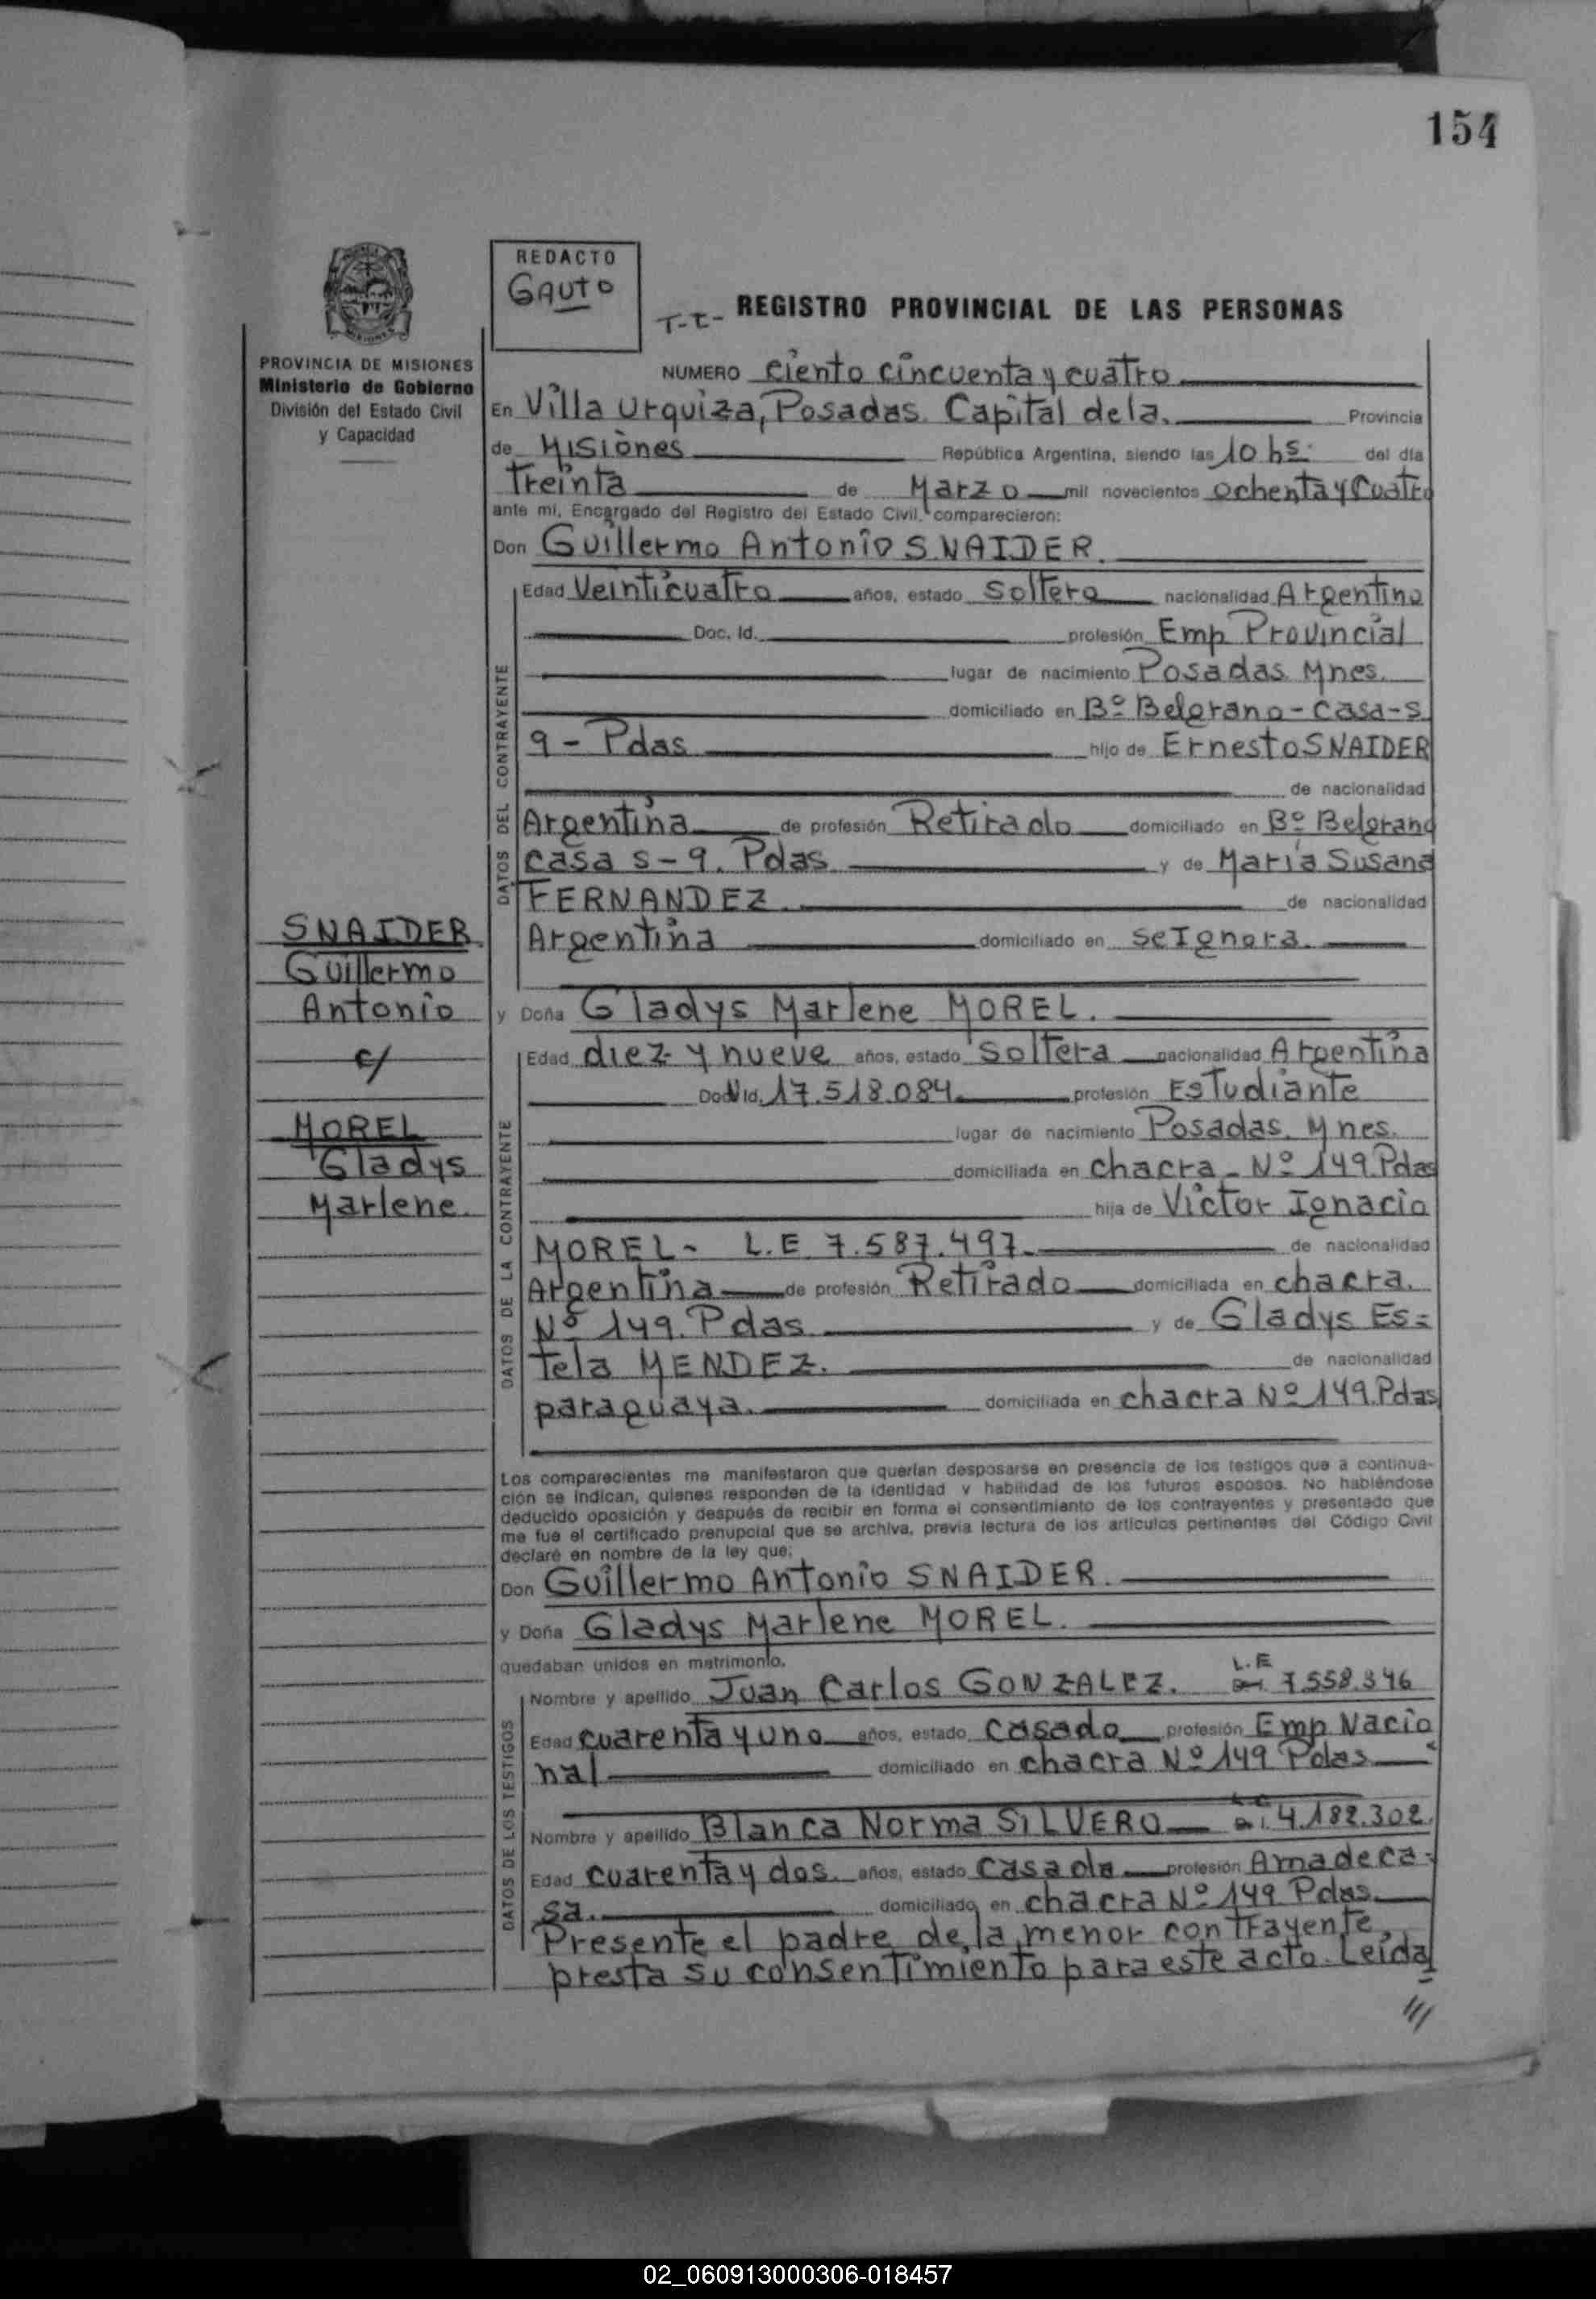 154
REDACTO
GAUTO
T-t- REGISTRO PROVINCIAL DE LAS PERSONAS
PROVINCIA DE MISIONES
Ministerio de Gobierno
División del Estado Civil
y Capacidad
NUMERO ciento cincuenta y cuatro
En Villa Urquiza, Posadas. Capital de la. Provincia
de Misiones República Argentina, siendo las 10 hs. del día
Treinta de Marzo mil novecientos ochenta y Cuatro
ante mí, Encargado del Registro del Estado Civil, comparecieron:
Don Guillermo Antonio SNAIDER.
DATOS DEL CONTRAYENTE
Edad Veinticuatro años, estado Soltero nacionalidad Argentino
Doc. Id. profesión Emp Provincial
lugar de nacimiento Posadas. Mnes.
domiciliado en Bº Belgrano - Casa-S
9 - Pdas hijo de Ernesto SNAIDER
de nacionalidad
Argentina de profesión Retirado domiciliado en Bº Belgrano
casa s-9. Pdas y de María Susana
FERNANDEZ de nacionalidad
Argentina domiciliado en se Ignora.
SNAIDER
Guillermo
Antonio
c/
MOREL
Gladys
Marlene.
y Doña Gladys Marlene MOREL.
DATOS DE LA CONTRAYENTE
Edad diez y nueve años, estado Soltera nacionalidad Argentina
Id. 17.518.084 profesión Estudiante
lugar de nacimiento Posadas. Mnes.
domiciliada en chacra - Nº 149 Pdas
hija de Victor Ignacio
MOREL - L.E 7.587.497. de nacionalidad
Argentina de profesión Retirado domiciliada en chacra.
Nº 149. Pdas y de Gladys Es=
tela MENDEZ. de nacionalidad
paraguaya. domiciliada en chacra Nº 149. Pdas
Los comparecientes me manifestaron que querían desposarse en presencia de los testigos que a continua-
ción se indican, quienes responden de la identidad y habilidad de los futuros esposos. No habiéndose
deducido oposición y después de recibir en forma el consentimiento de los contrayentes y presentado que
me fue el certificado prenupcial que se archiva, previa lectura de los artículos pertinentes del Código Civil
declaré en nombre de la ley que:
Don Guillermo Antonio SNAIDER.
y Doña Gladys Marlene MOREL.
quedaban unidos en matrimonio.
DATOS DE LOS TESTIGOS
Nombre y apellido Juan Carlos GONZALEZ. L.E 7.558.346
Edad cuarenta y uno años, estado casado profesión Emp. Nacio
nal domiciliado en chacra Nº 149 Pdas
Nombre y apellido Blanca Norma SILVERO 4.182.302.
Edad cuarenta y dos. años, estado casada profesión Ama de ca-
sa. domiciliado en chacra Nº 149 Pdas
Presente el padre de la menor contrayente,
presta su consentimiento para este acto. Leída
///
02_060913000306-018457